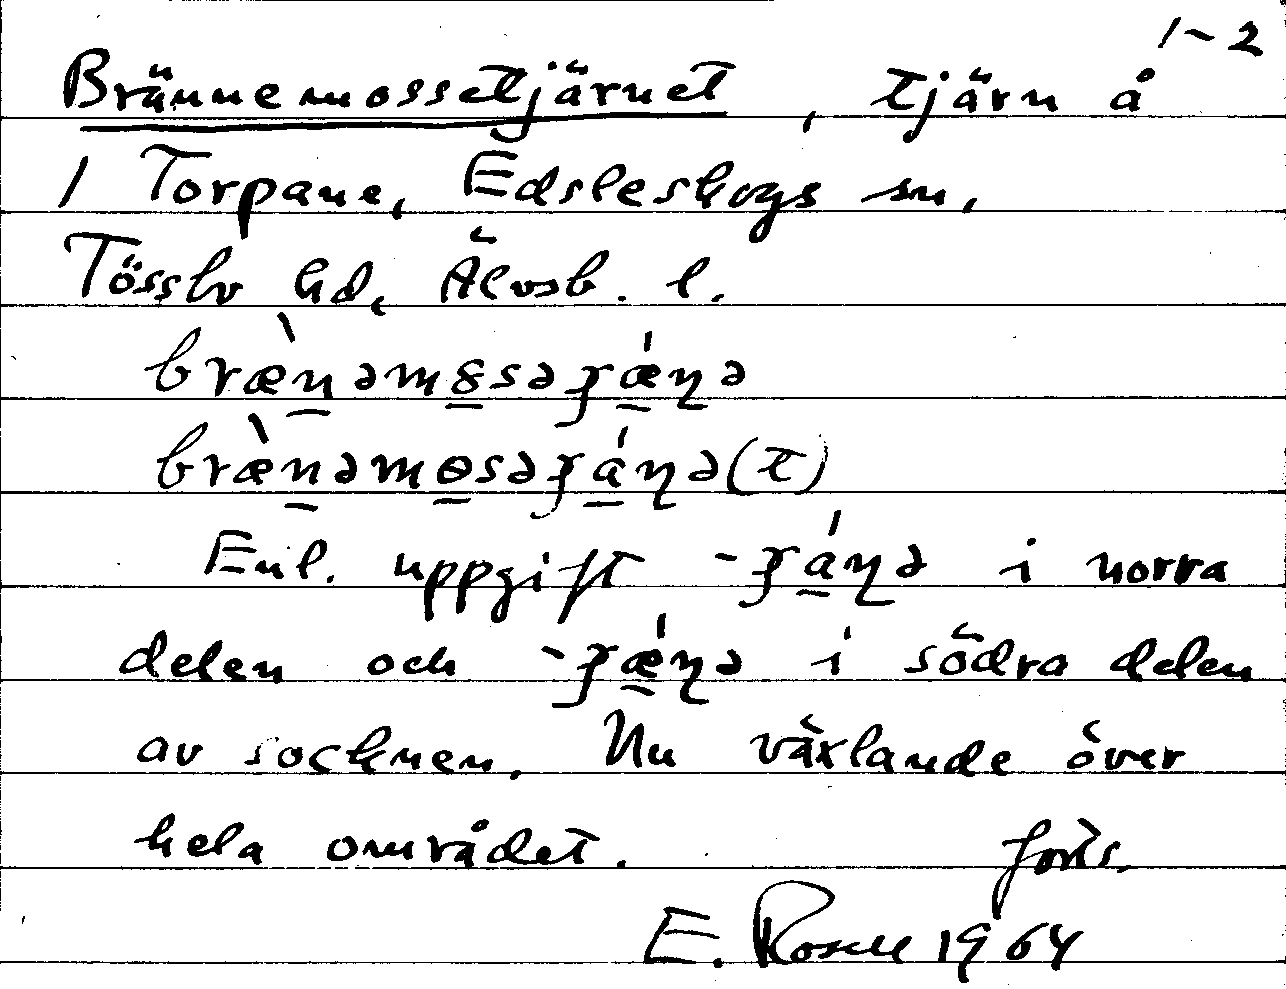 1~2
Brännemossetjärnet, tjärn å
1 Torpane, Edsleskogs sn,
Tössbo hd, Älvsb. l.
bræ̀nəm8səʃǽɳə
bræ̀nəmɵsəʃáɳə(t)
Enl. uppgift -ʃáɳə i norra
delen och -ʃǽɳə i södra delen
av socknen. Nu växlande över
hela området. forts.
E. Rosell 1964